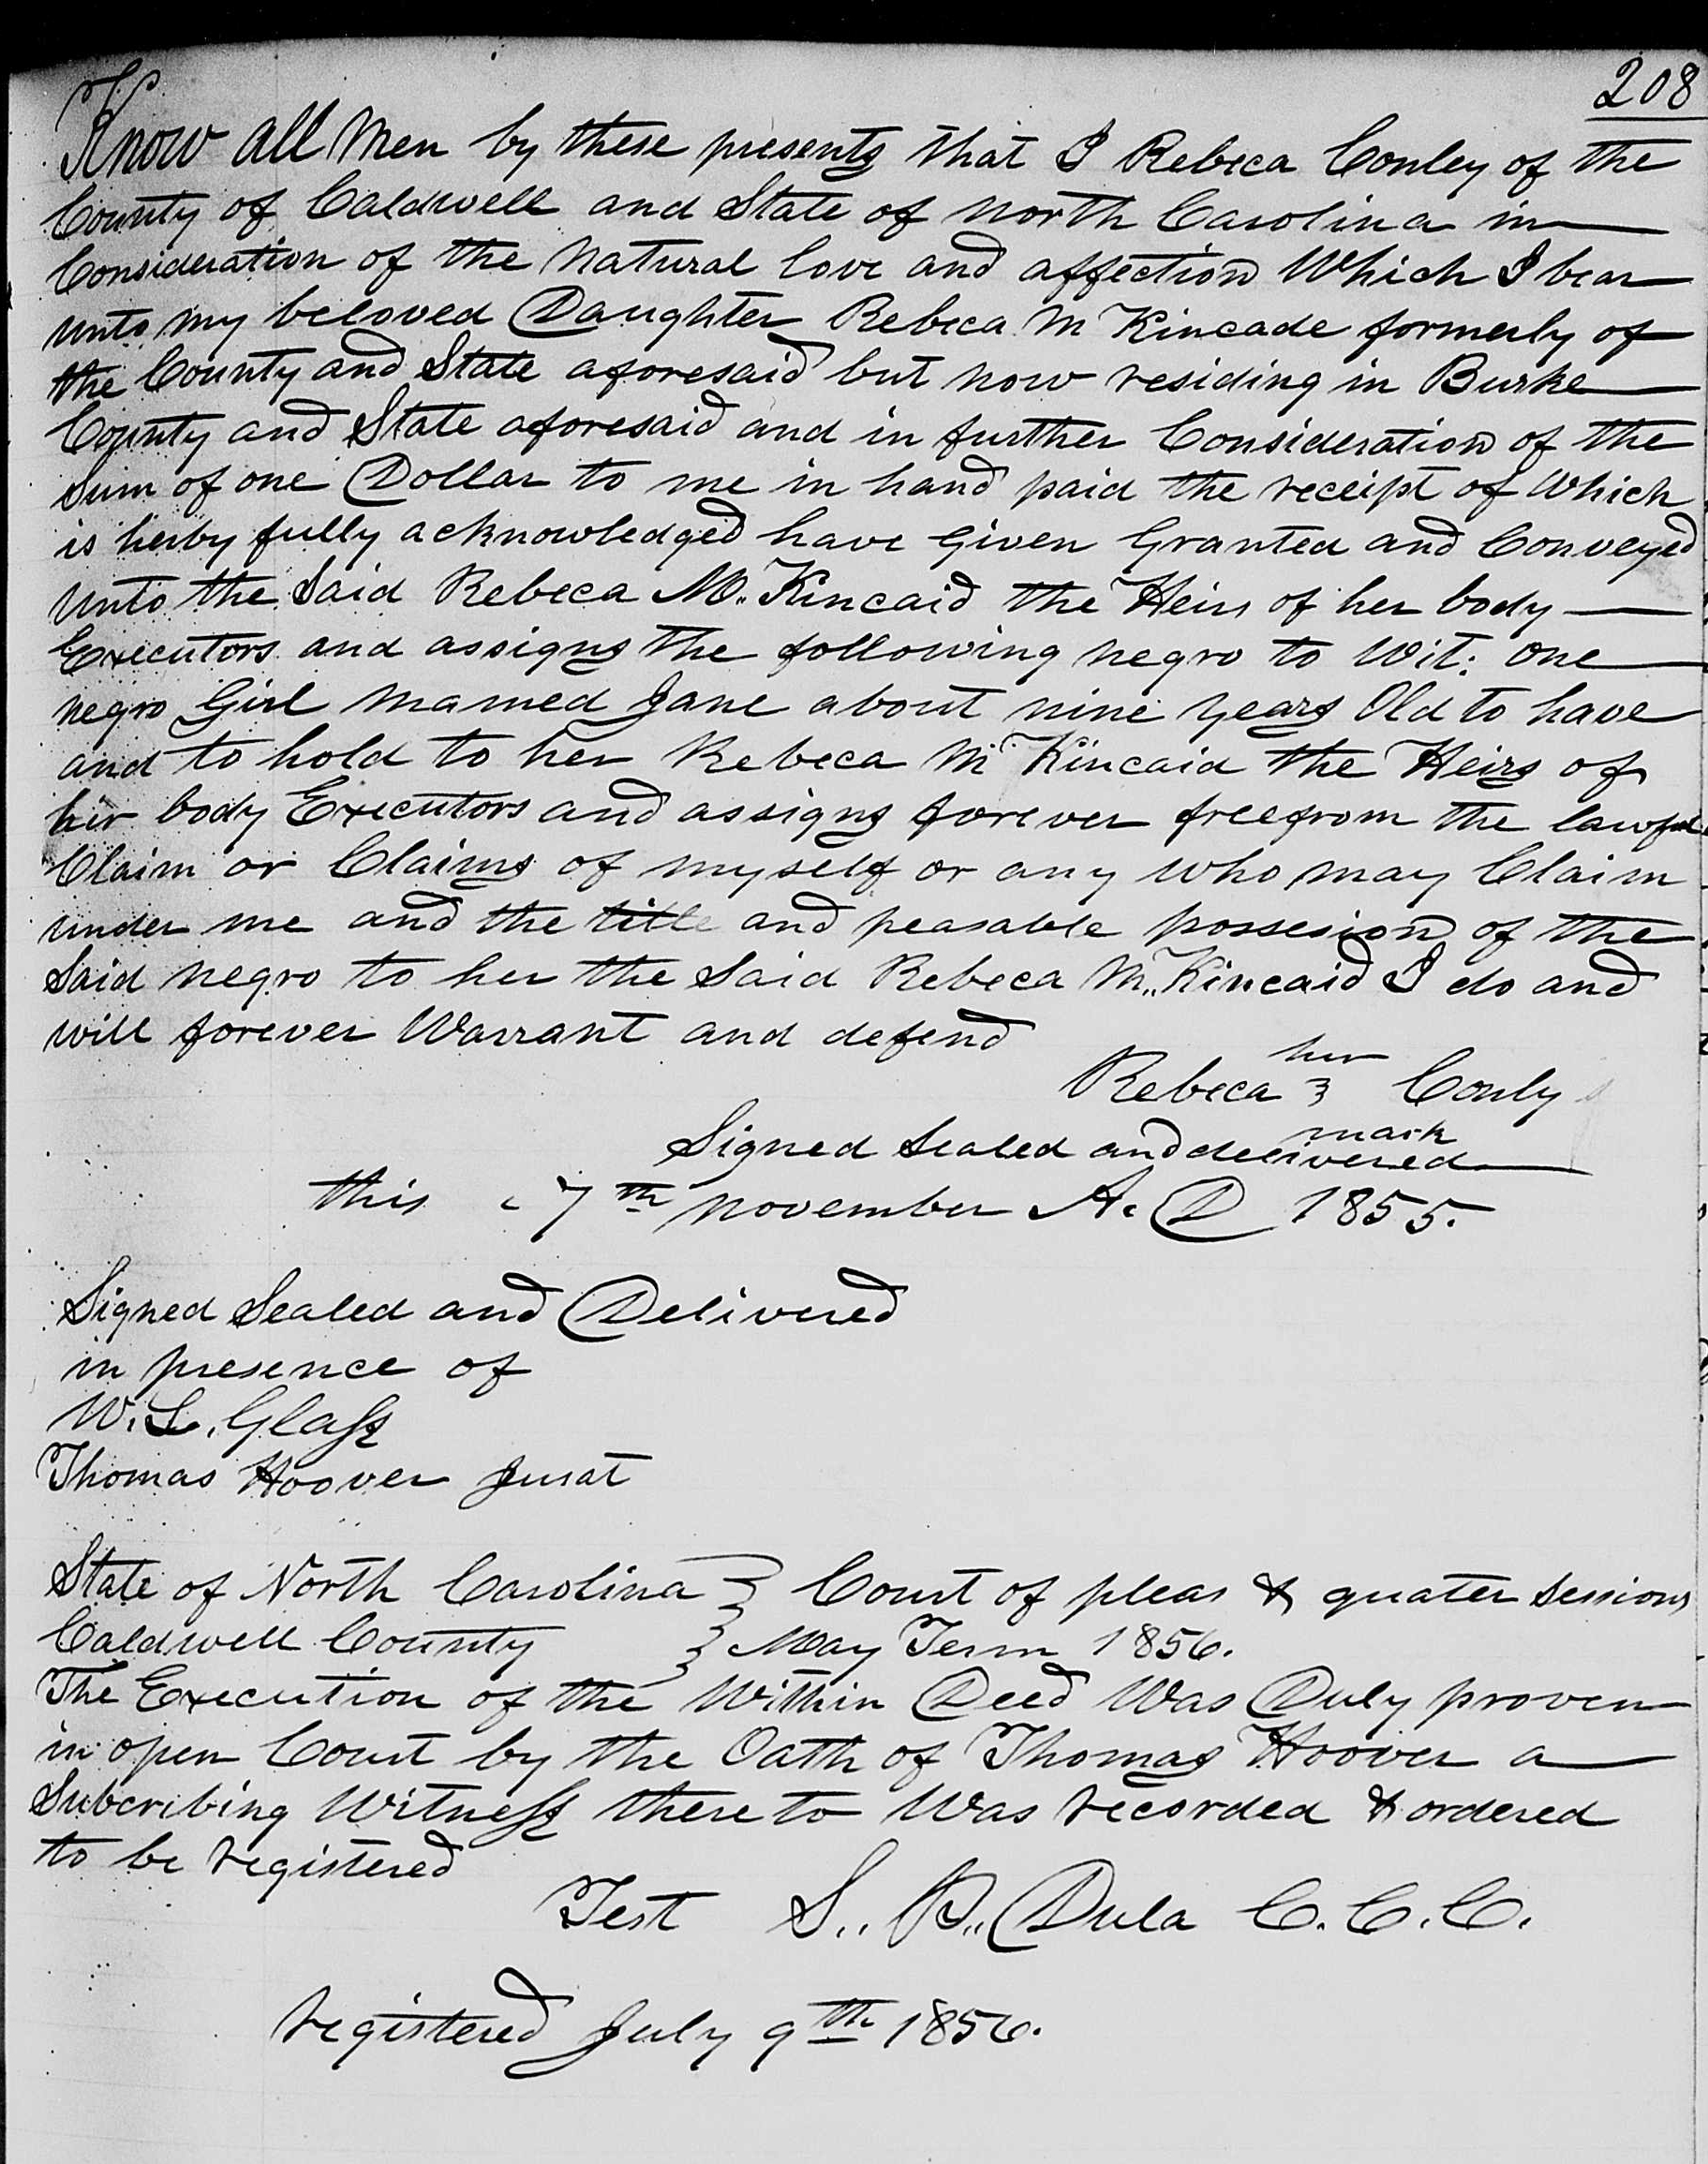 208
Know all Men by these presents that I Rebeca Conley of the
County of Caldwell and State of North Carolina in
Consideration of the Natural love and affection Which I bear
unto my beloved Daughter Rebeca M Kincade formerly of
the County and State aforesaid but now residing in Burke
County and State aforesaid and in further Consideration of the
Sum of one Dollar to me in hand paid the receipt of Which
is herby fully acknowledged have Given Granted and Conveyed
unto the Said Rebeca M. Kincaid the Heirs of her body
Executors and assigns the following negro to Wit: one
negro Girl Mamed Jane about nine years Old to have
and to hold to her Rebeca M Kincaid the Heirs of
her body Executors and assigns forever free from the lawful
Claim or Claims of myself or any who may Claim
under me and the title and peasable possesion of the
Said negro to her the Said Rebeca M. Kincaid I do and
will forever Warrant and defend
her
Rebeca 3 Conly
mark
Signed Sealed and delivered
this 7th November A. D 1855.
Signed Sealed and Delivered
in presence of
W. L. Glass
Thomas Hoover Jurat
State of North Carolina } Court of pleas & quater Sessions
Caldwell County } May Term 1856.
The Execution of the Within Deed Was Duly proven
in open Court by the Oath of Thomas Hoover a
Subcribing Witness there to Was recorded & ordered
to be registered
Test S.. B.. Dula C. C. C.
registered July 9th 1856.